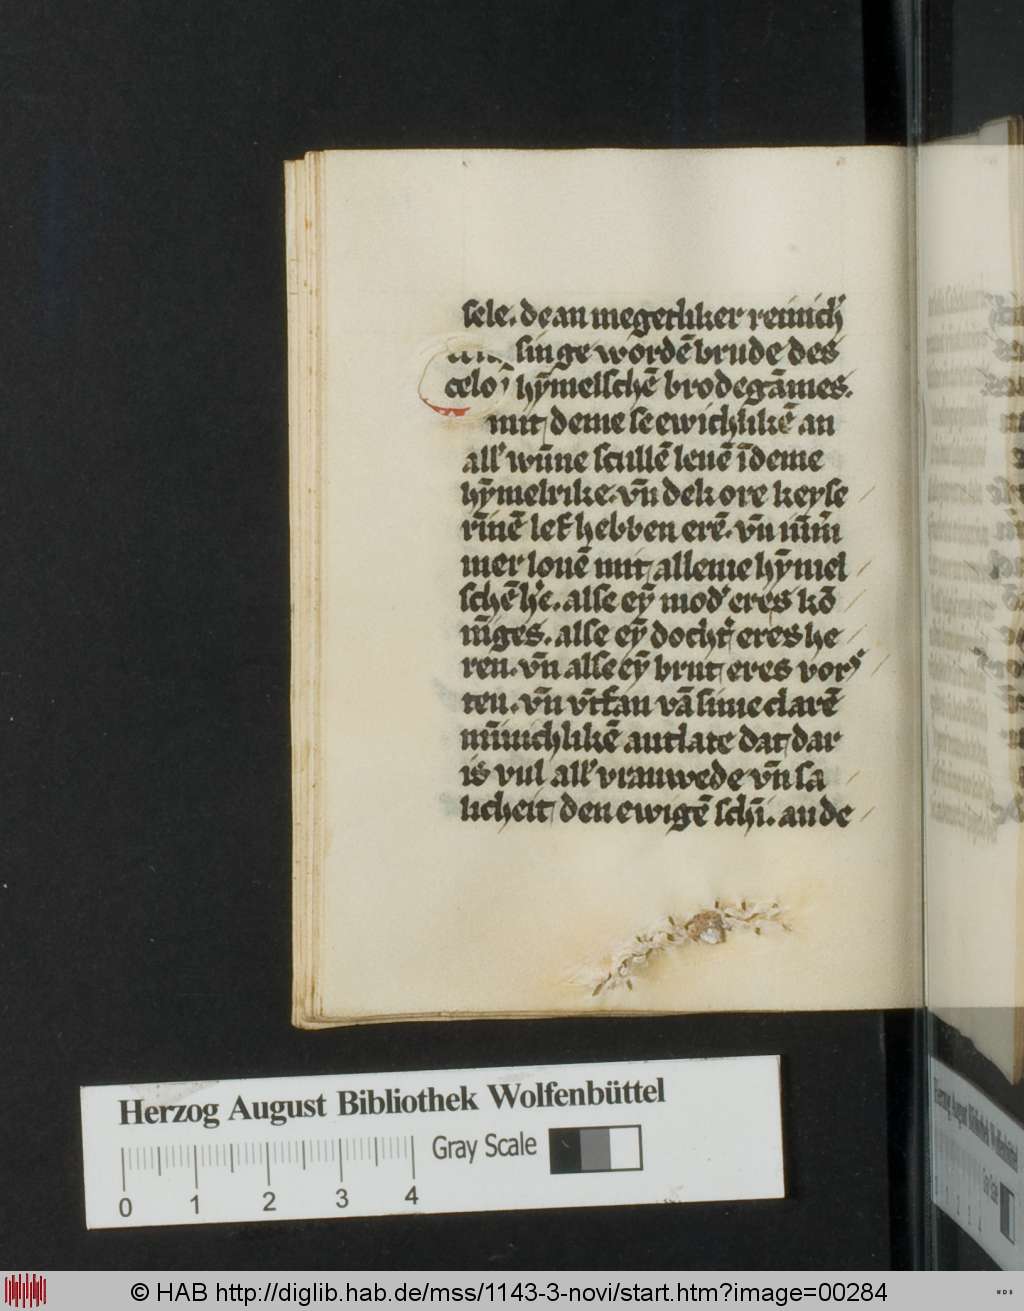 sele. de an megetliker reinich̕
singe wordē brude des
celo hȳmelschē brodegāmes.
mit deme se ewichlikē an
all' wūne scullē leuē īdeme
hȳmelrike. vn̄ de kore keyse
rīnē lef hebben erē. vn̄ nūm̄
mer louē mit alleme hȳmel
schē h'e. alse eȳ mod' eres kō
nīges. alse eȳ docht' eres he
ren. vn̄ alse eȳ brut eres vors'
ten. vn̄ vn̄tfan vā sime clarē
mīnichlikē antlate dat dar
is vul all' vrauwede vn̄ sa
licheit den ewigē schī. an de
Herzog August Bibliothek Wolfenbüttel
Gray Scale
0 1 2 3 4
© HAB http://diglib.hab.de/mss/1143-3-novi/start.htm?image=00284